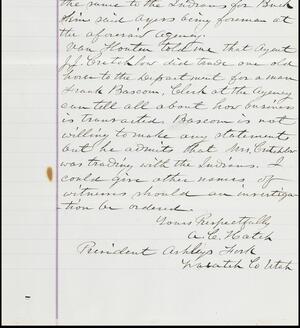 the same to the Indians for Buck
skin said Ayers being foreman at
the aforesaid Agency.
Van Houten told me that Agent
J.J. Critchlow did trade one old
horse to the Department for a mare
Frank Bascom, Clerk at the Agency
can tell all about how business
is transacted. Bascom is not
willing to make any statements
but he admits that Mrs. Critchlow
was trading with the Indians. I
could give other names of
witness should an investiga
tion be ordered.
Yours Respectfully
A. C. Hatch
President Ashleys Fork
Wasatch Co Utah